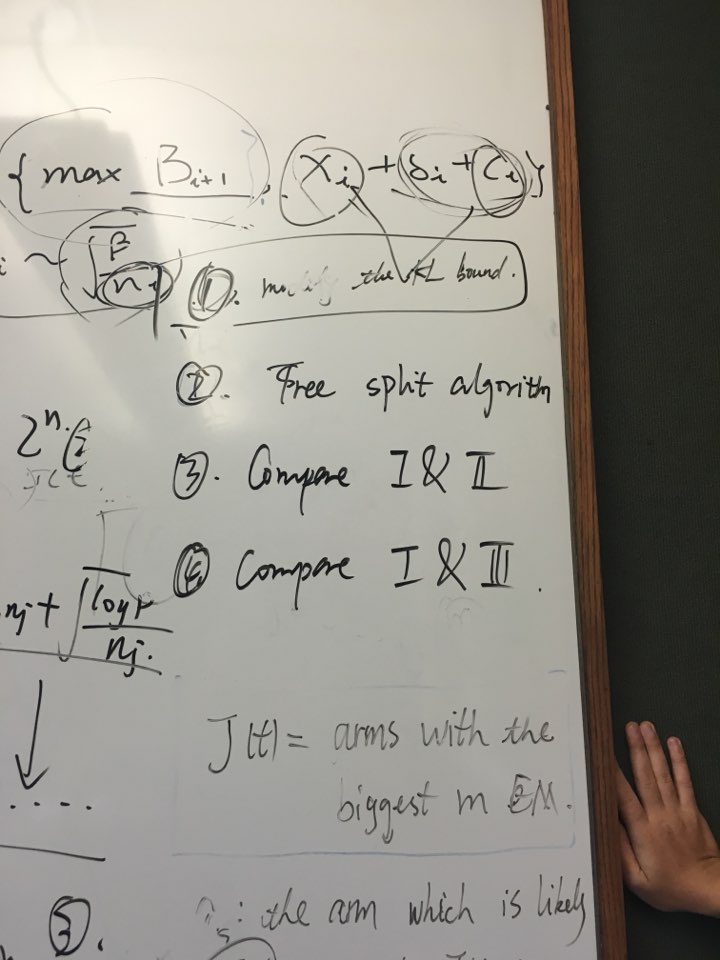 { max B_{i+1}, X_i + δ_i + C_i }
i ~ √(β/n_i)
①. the KL bound.
②. Free split algorithm
2^n
③. Compare I & II
④ Compare I & III.
n_j + √(log t / n_j.)
J(t) = arms with the
biggest m EM.
....
⑤.
: the arm which is likely